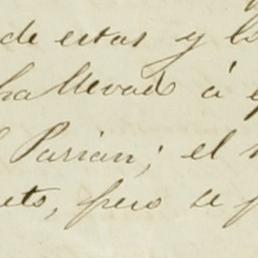 de estas y lo
ha llevado á e
Parian; el
eto, pero se p